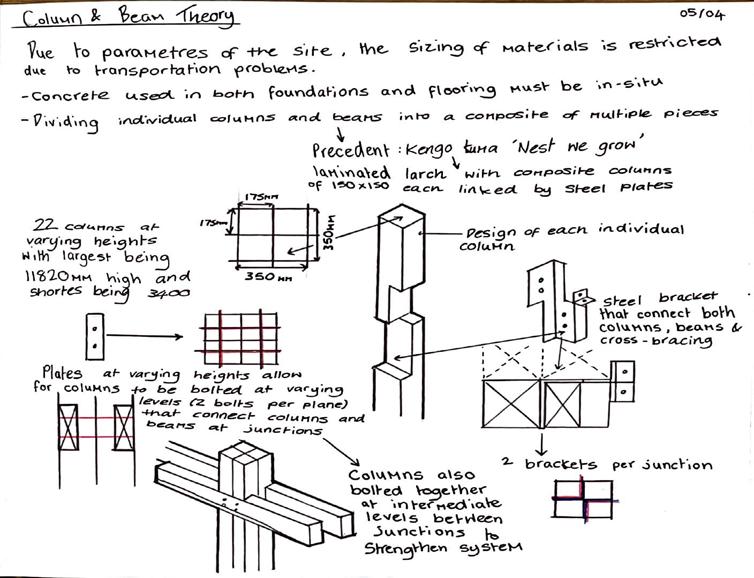 Column & Beam Theory
05/04
Due to parametres of the site, the sizing of materials is restricted
due to transportation problems.
-Concrete used in both foundations and flooring must be in-situ
-Dividing individual columns and beams into a composite of multiple pieces
Precedent : Kengo kuma 'Nest we grow'
laminated larch with composite columns
of 150x150 each linked by steel plates
175mm
175mm
350mm
350mm
22 columns at
varying heights
with largest being
11820mm high and
shortes being 3400
Design of each individual
column
Steel bracket
that connect both
columns, beams &
cross-bracing
Plates at varying heights allow
for columns to be bolted at varying
levels (2 bolts per plane)
that connect columns and
beams at junctions
2 brackets per junction
Columns also
bolted together
at intermediate
levels between
junctions to
strengthen system